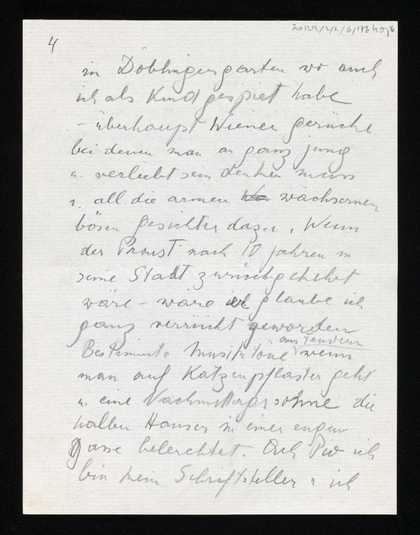 4
im Döblingergarten wo auch
ich als Kind gespielt habe
– überhaupt Wiener gerüche
bei denen man an ganz jung
u. verliebt sein denken muss
u. all die armen wächsernen
bösen gesichter dazu. Wenn
der Proust nach 10 Jahren in
seine Stadt zurückgekehrt
wäre – wäre er glaube ich
ganz verrückt geworden
Bestimmte Musiktöne aus Fenstern wenn
man auf Katzenpflaster geht
u. eine Nachmittagssonne die
halben Häuser in einer engen
Gasse beleuchtet. Ach ich
bin kein Schriftsteller u ich